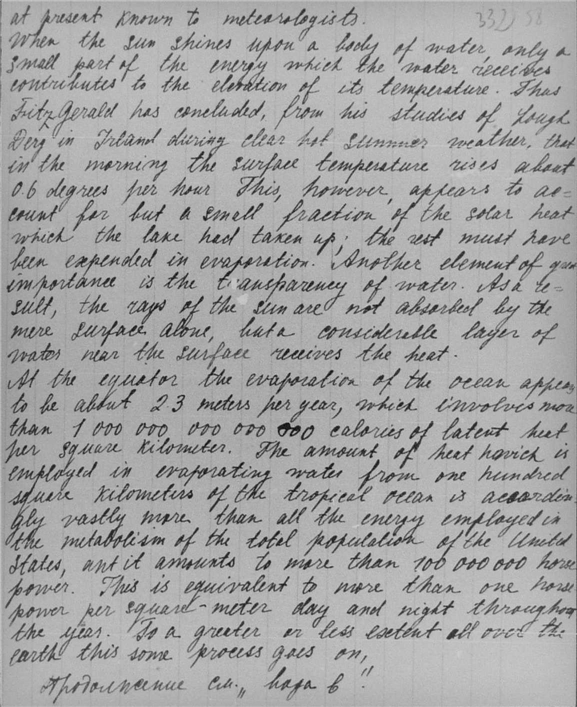 at present known to meteorologists.
When the sun shines upon a body of water only a
small part of the energy which the water receives
contributes to the elevation of its temperature. Thus
FitzGerald has concluded, from his studies of Lough
Derg in Irland during clear hot summer weather, that
in the morning the surface temperature rises about
0.6 degrees per hour This, however, appears to ac=
count for but a small fraction of the solar heat
which the lake had taken up; the rest must have
been expended in evaporation. Another element of great
importance is the transparency of water. As a re=
sult, the rays of the sun are not absorbed by the
mere surface alone, but a considerable layer of
water near the surface receives the heat.
At the equator the evaporation of the ocean appears
to be about 2.3 meters per year, which involves more
than 1 000 000 000 000 000 calories of latent heat
per square kilometer. The amount of heat which is
employed in evaporating water from one hundred
square kilometers of the tropical ocean is accordin
gly vastly more than all the energy employed in
the metabolism of the total population of the United
States, ant it amounts to more than 100 000 000 horse
power. This is equivalent to more than one horse
power per square-meter day and night throughout
the year. To a greater or less extent all over the
earth this some process goes on,
Продолжение см. „вода в"